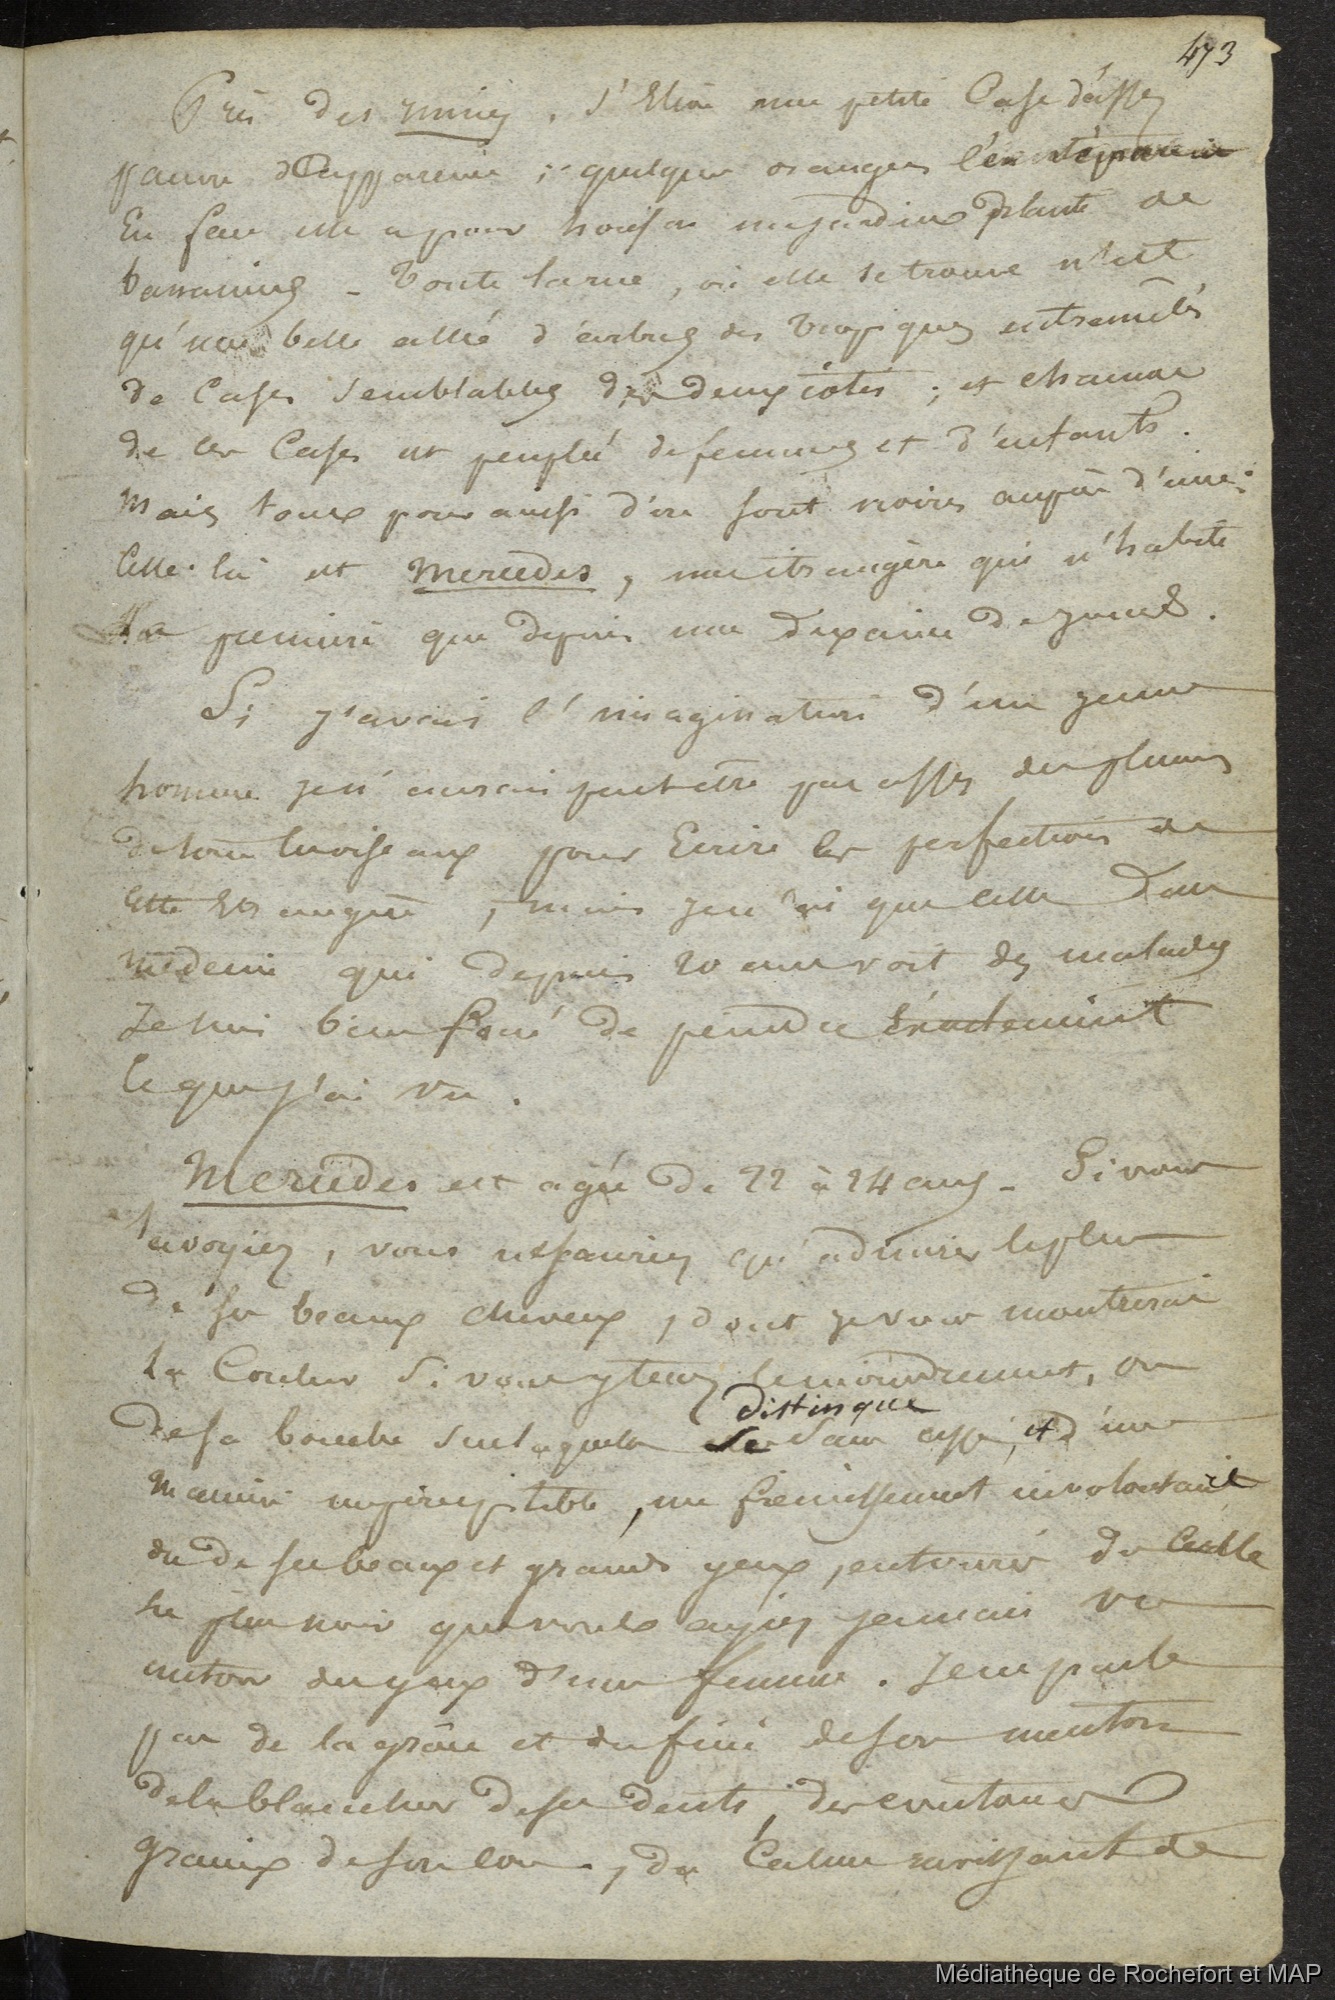 473
Près des ruines, s'élève une petite Case d'assez
pauvre d'apparence ; quelques orangers
En face elle a pour horison un jardin planté de
bananiers _ Toute la rue, où elle se trouve n'est
qu'une belle allée d'arbres des tropiques entremêlés
de Cases semblables des deux côtés ; et chacune
de ces Cases est peuplée de femmes et d'enfants.
Mais tous pour ainsi dire sont noirs auprès d'une.
Celle-là est Mercedes, une étrangère qui n'habite
la première que depuis une dixaine de jours.
Si j'avais l'imagination d'un jeune
homme je n'aurais peut être pas assez des plumes
de tous les oiseaux pour Ecrire les perfections de
cette Etrangère, mais je n'ai que celle d'un
médecin qui depuis 20 ans voit des malades
Je suis bien forcé de peindre exactement
ce que j'ai vu.
Mercedes est agée de 22 à 24 ans _ Si vous
la voyiez, vous ne sauriez qu'admirer le plus
de ses beaux cheveux, dont je vous montrerai
la Couleur si vous y tenez le moindrement, ou
de sa bouche sur laquelle
distingue
sans cesse, et d'une
manière imperceptible, un frémissement involontaire
ou de ses beaux et grands yeux, entourés du Cercle
le plus noir que vous ayiez jamais vu
autour des yeux d'une femme. Je ne parle
pas de la grâce et du fini de son menton
de la blancheur de ses dents, des contours
gracieux de son cou, du Calme ravissant de
Médiathèque de Rochefort et MAP